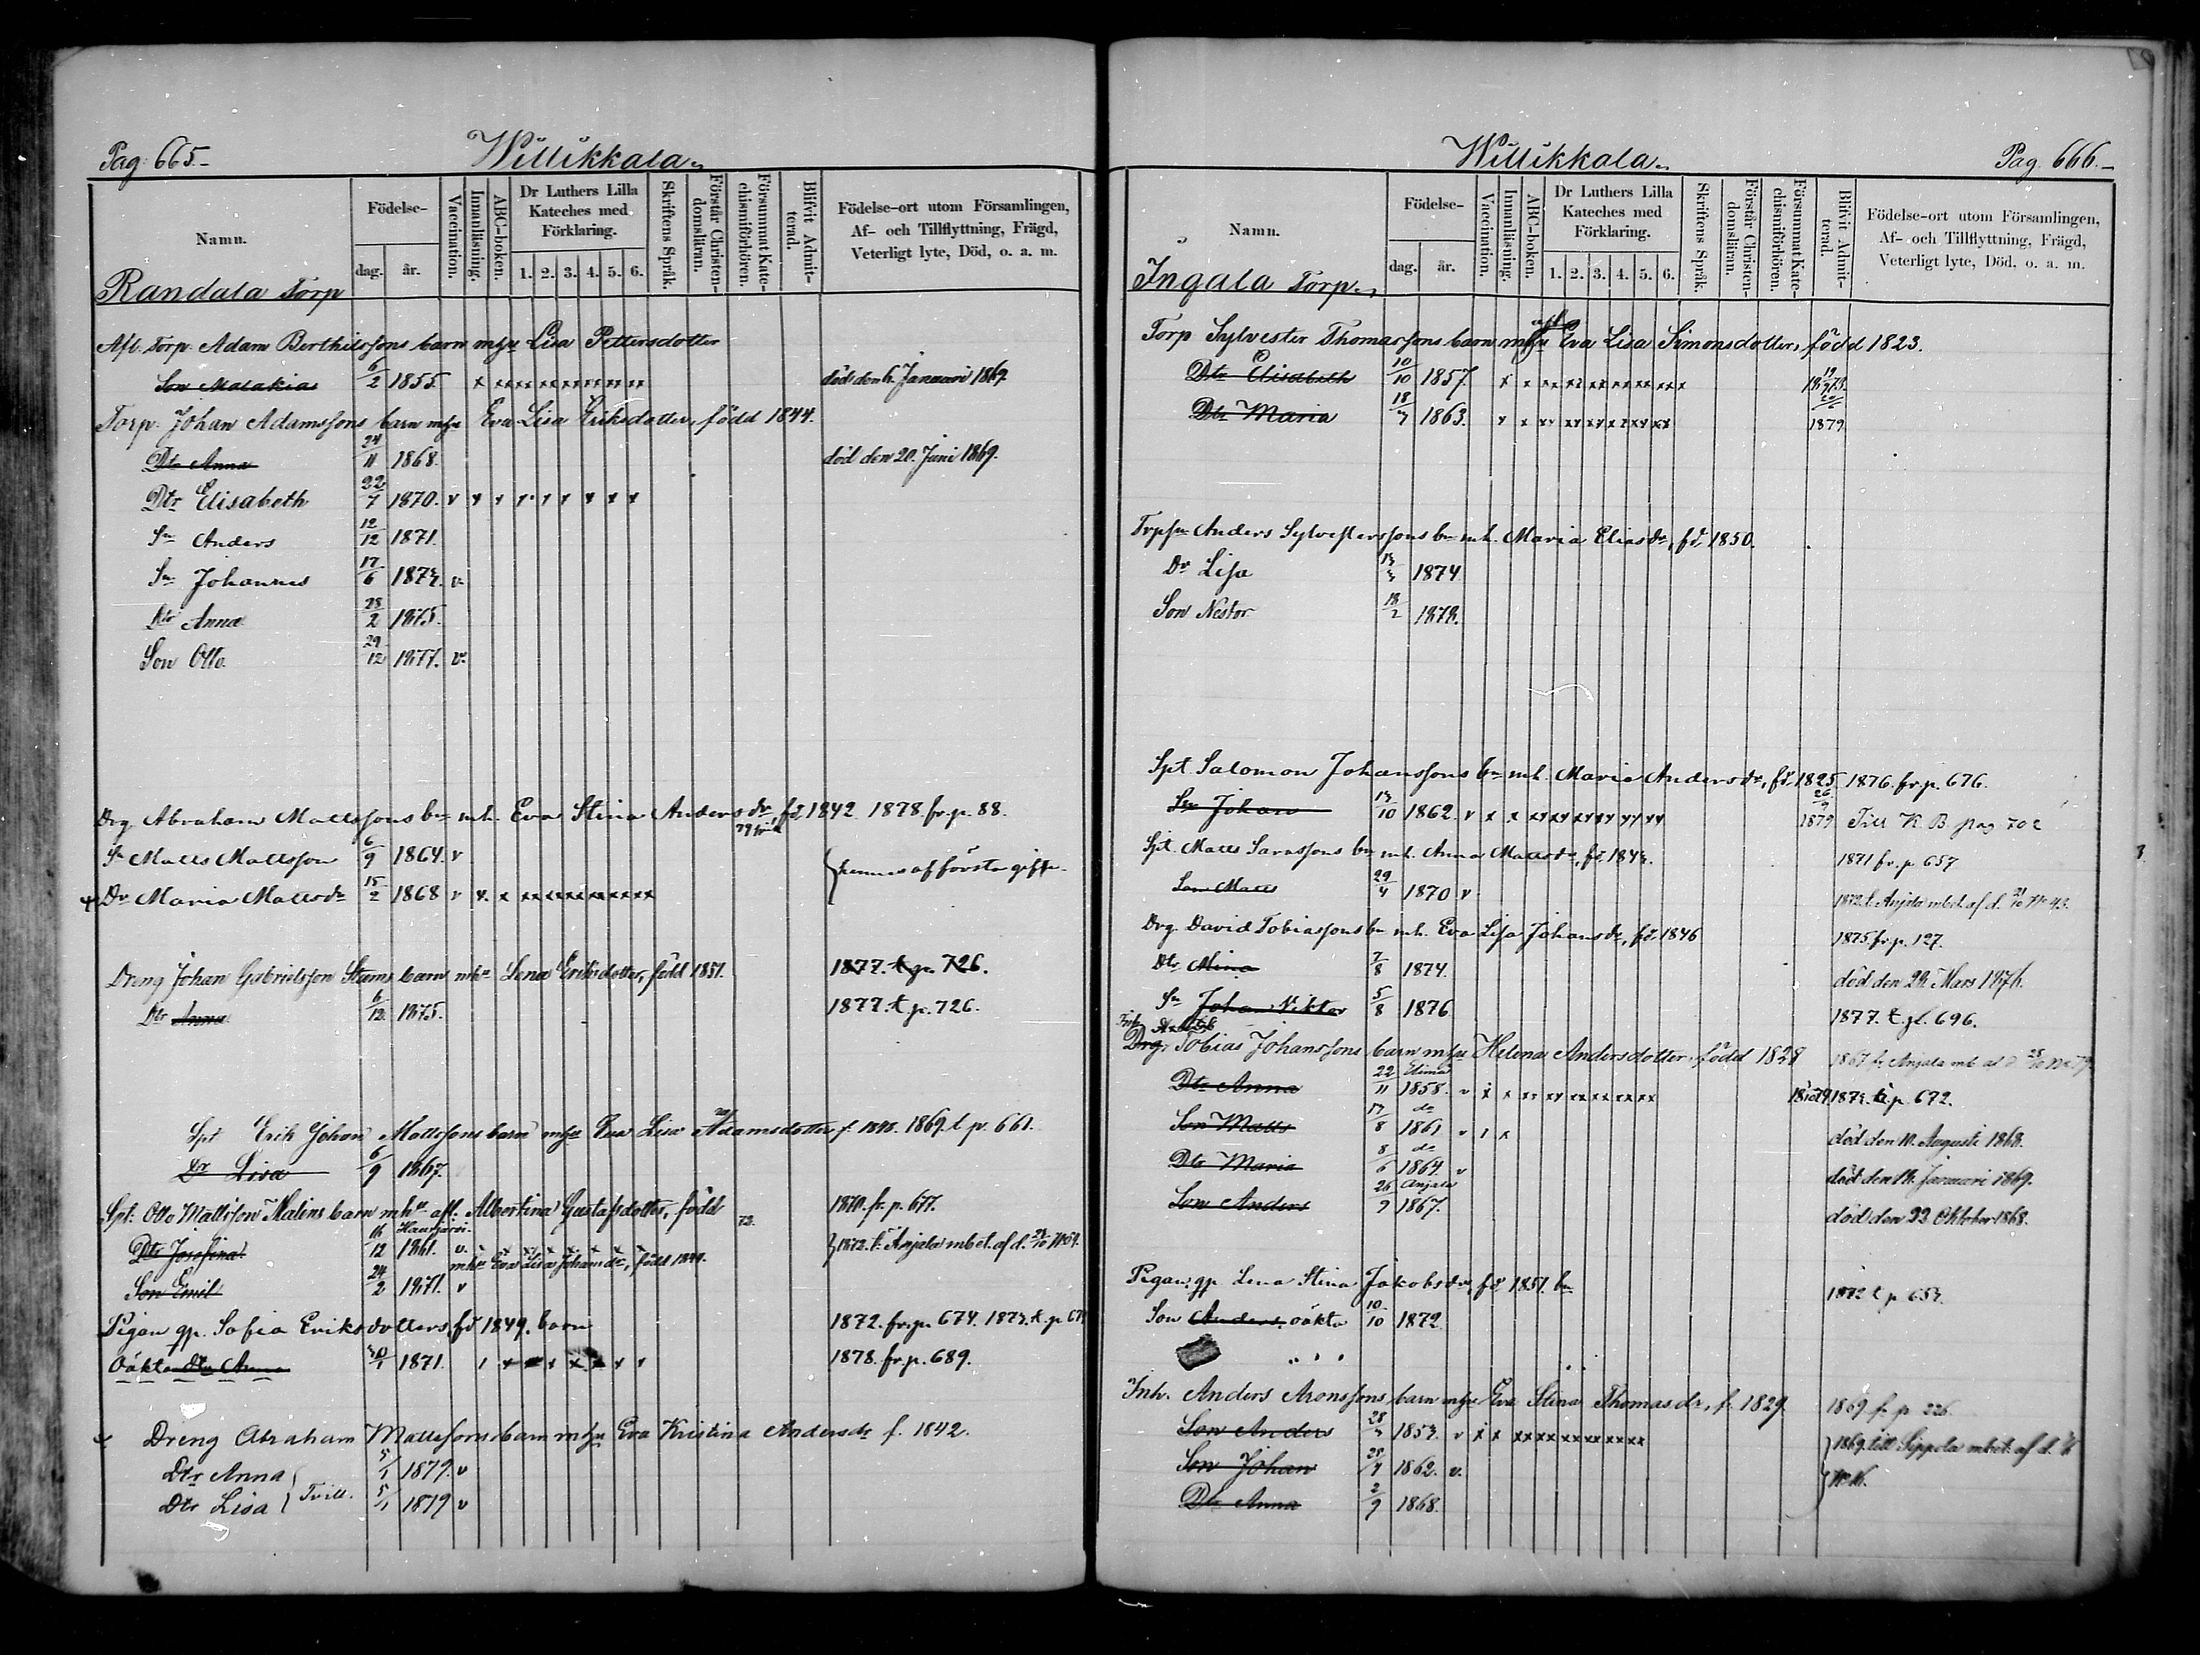 Pag. 665.
Willikkala.
Namn.
Födelse-
dag. år.
Vaccination.
Innanläsning.
ABC-boken.
Dr Luthers Lilla Kateches med Förklaring.
1. 2. 3. 4. 5. 6.
Skriftens Språk.
Förstår Christendomsläran.
Försummat Katechismiförhören.
Blifvit Admitterad.
Födelse-ort utom Församlingen,
Af- och Tillflyttning, Frägd,
Veterligt lyte, Död, o. a. m.
Randala Torp
Afl. Torp. Adam Berthilssons barn mhu Lisa Pettersdotter
Son Malakias 6/2 1855. död den 6. Januari 1869.
Torp. Johan Adamssons barn mhu Eva Lisa Eriksdotter, född 1844.
Dtr Anna 24/11 1868. död den 20. Juni 1869.
Dtr Elisabeth 22/7 1870. v
Sn Anders 12/12 1871.
Sn Johannes 17/6 1873. v.
Dtr Anna 28/2 1875.
Son Otto 29/12 1877. v.
Drg. Abraham Mattssons bn mh. Eva Stina Andersdr fd. 1842 1878. fr. p. 88.
Sn Matts Mattsson 6/9 1864. v
Dr Maria Mattsdr 15/2 1868 v hennes af första gifte
Dreng Johan Gabrielsson Stams barn mhu Lena Eriksdotter, född 1851. 1877. t. p. 726.
Dtr Anna 6/12 1875. 1877 t. p. 726.
Spt Erik Johan Mattssons barn mhu Eva Lisa Adamsdotter f. 1848. 1869. t. p. 661.
Dr Lisa 6/9 1867.
Spt. Otto Mattsson Malins barn mhu afl. Albertina Gustafsdotter, född 1870. fr. p. 677.
Dtr Josefina 16/12 1861. v. Hausjärvi 72. 1872. t. Anjala mbet. af d.
mhu Eva Lisa Johansdr, född 1849.
Son Emil 24/2 1871. v
Pigan gp. Sofia Eriksdotters, fd 1849, barn 1872. fr. p. 674. 1873. t. p.
Oäkta Dtr Anna 1871. 1878. fr. p. 689.
Dreng Abraham Mattssons barn mhu Eva Kristina Andersdr f. 1842.
Dtr Anna 5/1 1879. v
Tvill.
Dtr Lisa 5/1 1879 v
Willikkala.
Pag. 666.
Namn.
Födelse-
dag. år.
Vaccination.
Innanläsning.
ABC-boken.
Dr Luthers Lilla Kateches med Förklaring.
1. 2. 3. 4. 5. 6.
Skriftens Språk.
Förstår Christendomsläran.
Försummat Katechismiförhören.
Blifvit Admitterad.
Födelse-ort utom Församlingen,
Af- och Tillflyttning, Frägd,
Veterligt lyte, Död, o. a. m.
Ingala Torp.
Torp Sylvester Thomassons barn mhu afl. Eva Lisa Simonsdotter, född 1823.
Dtr Elisabeth 10/10 1857.
Dtr Maria 18/7 1863. 1879
Torpsn Anders Sylvesterssons bn mh. Maria Eliasdr, fd. 1850.
Dr Lisa 13/3 1874
Son Nestor 18/2 1878.
Spt. Salomon Johanssons bn mh. Maria Andersdr, fd. 1825 1876. fr. p. 676.
Sn Johan 13/10 1862. v 26/9 1879 Till K. B. pag 702
Spt. Matts Sarassons bn mh. Anna Mattsdr, fd. 1843. 1871 fr. p. 657
Son Matts 29/4 1870 v 1872. t. Anjala mbet. af d. No 43.
Drg. David Tobiassons bn mh. Eva Lisa Johansdr, fd 1846 1875 fr. p. 127.
Dtr Mina 7/8 1874. död den 28. Mars 1876.
Sn Johan Viktor 5/8 1876 1877. t. p. 696.
Drg. Tobias Johanssons barn mhu Helena Andersdotter, född 1828 1867 fr. Anjala mb. af d.
Dtr Anna 22/11 1858. v Elimä 1873. t. p. 672.
Son Matts 17/8 1861 v do död den 10. Augusti 1868.
Dtr Maria 8/6 1864. v do död den 14. Januari 1869.
Son Anders 26/9 1867. Anjala död den 23 Oktober 1868.
Pigan, gp. Lena Stina Jakobsdr, fd 1851. bn 1872 t. p. 653.
Son Anders, oäkta 10/10 1872.
Inh. Anders Aronssons barn mhu Eva Stina Thomasdr, f. 1829. 1869 f. p. 226.
Son Anders 28/3 1853. v 1869. till Sippola mbet. af d.
Son Johan 1862. v. No 16.
Dtr Anna 2/9 1868.